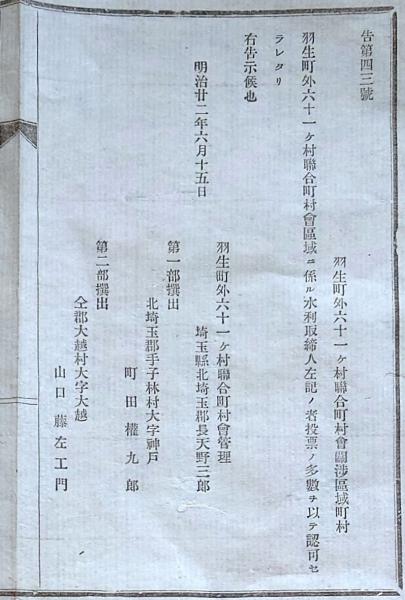 告第四三號
羽生町外六十一ケ村聯合町村會關渉區域町村
羽生町外六十一ケ村聯合町村會區域ニ係ル水利取締人左記ノ者投票ノ多數ヲ以テ認可セ
ラレタリ
右告示候也
明治廿二年六月十五日
羽生町外六十一ケ村聯合町村會管理
埼玉縣北埼玉郡長天野三郎
第一部撰出
北埼玉郡手子林村大字神戸
町田權九郎
第二部撰出
仝郡大越村大字大越
山口藤左工門